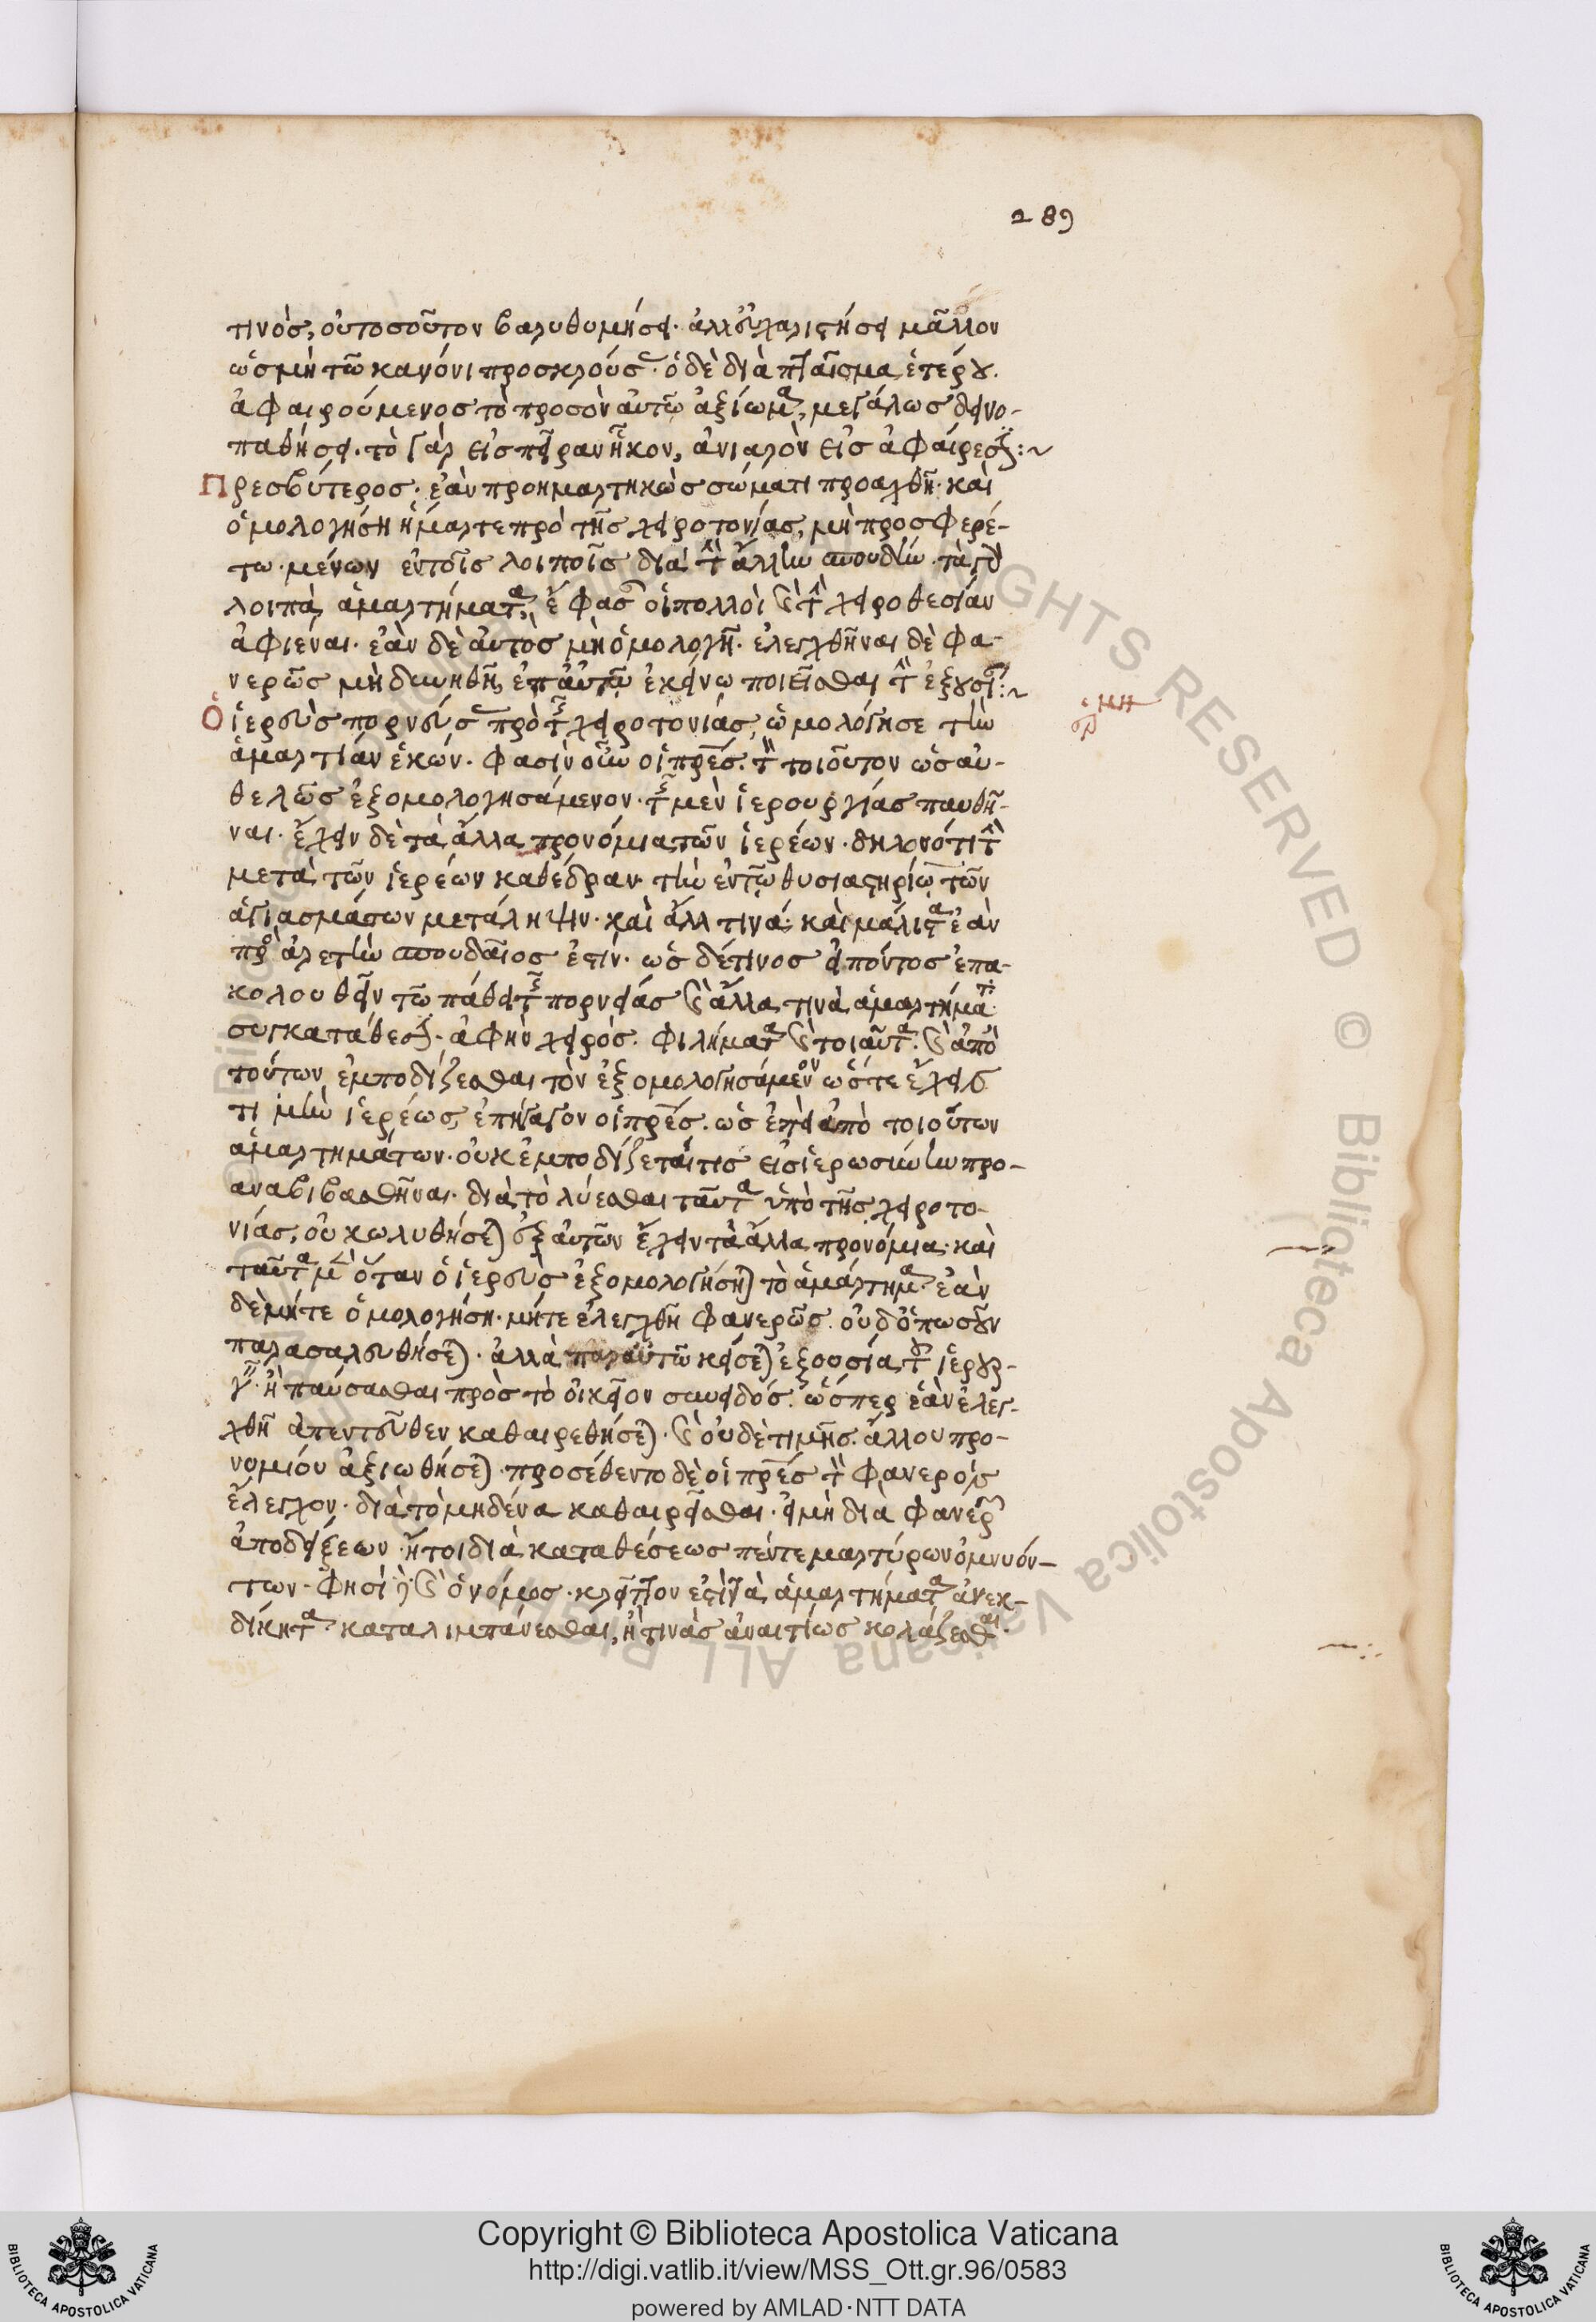 289
τινὸς, οὐ τοσοῦτον βαρυθυμήσει· ἀλλ' εὐχαριστήσει μᾶλλον
ὡς μὴ τῶ κανόνι προσκρούσας· ὁ δὲ διὰ πταῖσμα ἑτέρου
ἀφαιρούμενος τὸ προσὸν αὐτῶ ἀξίωμα, μεγάλως δεινο-
παθήσει. τὸ γὰρ εἰς πεῖραν ἧκον, ἀνιαρὸν εἰς ἀφαίρεσιν:~
Πρεσβύτερος· ἐὰν προημαρτηκὼς σώματι προαχθῆ· καὶ
ὁμολογήση ἥμαρτε πρὸ τῆς χειροτονίας, μὴ προσφερέ-
τω· μένων ἐν τοῖς λοιποῖς διὰ τὴν ἄλλην σπουδήν. τὰ γὰρ
λοιπὰ ἁμαρτήματα, ἔφασαν οἱ πολλοὶ καὶ τὴν χειροθεσίαν
ἀφιέναι· ἐὰν δὲ αὐτὸς μὴ ὁμολογῆ· ἐλεγχθῆναι δὲ φα-
νερῶς μὴ δυνηθῆ, ἐπ' αὐτῶ ἐκείνω ποιεῖσθαι τὴν ἐξουσίαν:~
Ὁ ἱερεὺς πορνεύσας πρὸ τῆς χειροτονίας, ὡμολόγησε τὴν
ἁμαρτίαν ἑκών· φασὶν οὖν οἱ πρες. τὸν τοιοῦτον ὡς αὐ-
θελῶς ἐξομολογησάμενον· τῆς μὲν ἱερουργίας παυθῆ-
ναι· ἔχειν δὲ τὰ ἄλλα προνόμια τῶν ἱερέων· δηλονότι τὴν
μετὰ τῶν ἱερέων καθέδραν· τὴν ἐν τῶ θυσιαστηρίω τῶν
ἁγιασμάτων μετάληψιν· καὶ ἄλλ τινά· καὶ μάλιστα ἐὰν
πρὸς ἀρετὴν σπουδαῖός ἐστιν· ὡς δέ τινος εἰπόντος ἐπα-
κολουθεῖν τῶ πάθει τῆς πορνείας καὶ ἄλλα τινὰ ἁμαρτήματα·
συγκατάθεσιν· ἀφὴν χειρός· φιλήματα καὶ τοιαῦτα· καὶ ἀπὸ
τούτων ἐμποδίζεσθαι τὸν ἐξομολογησάμενον ὥστε ἔχειν
τιμὴν ἱερέως, ἐπήγαγον οἱ πρες. ὡς ἐπεὶ ἀπὸ τοιούτων
ἁμαρτημάτων· οὐκ ἐμποδίζεταί τις εἰς ἱερωσύνην προ-
αναβιβασθῆναι· διὰ τὸ λύεσθαι ταῦτα ὑπὸ τῆς χειροτο-
νίας, οὐ κωλυθήσεται ἐξ αὐτῶν ἔχειν τὰ ἄλλα προνόμια· καὶ
ταῦτα μὲν ὅταν ὁ ἱερεὺς ἐξομολογήσηται τὸ ἁμάρτημα· ἐὰν
δὲ μήτε ὁμολογήση· μήτε ἐλεγχθῆ φανερῶς· οὐδ' ὁπωσοῦν
παρασαλευθήσεται· ἀλλὰ παρ' αὐτῶ κείσεται ἐξουσία τοῦ ἱερουρ-
γεῖν· ἢ παύσασθαι πρὸς τὸ οἰκεῖον συνειδός· ὥσπερ ἐὰν ἐλεγ-
χθῆ ἀπεντεῦθεν καθαιρεθήσεται· καὶ οὐδὲ τιμῆς ἄλλου προ-
νομίου ἀξιωθήσεται· προσέθεντο δὲ οἱ πρες τὸν φανερὸν
ἔλεγχον· διὰ τὸ μηδένα καθαιρεῖσθαι· εἰ μὴ διὰ φανερῶν
ἀποδείξεων· ἤτοι διὰ καταθέσεως πέντε μαρτύρων ὀμνυόν-
των· φησὶ γὰρ καὶ ὁ νόμος· κρεῖττον ἐστὶ τὰ ἁμαρτήματα ἀνεκ-
δίκητα καταλιμπάνεσθαι, ἢ τινὰς ἀναιτίως κολάζεσθαι·
Copyright © Biblioteca Apostolica Vaticana
http://digi.vatlib.it/view/MSS_Ott.gr.96/0583
powered by AMLAD·NTT DATA
BIBLIOTECA APOSTOLICA VATICANA
BIBLIOTECA APOSTOLICA VATICANA